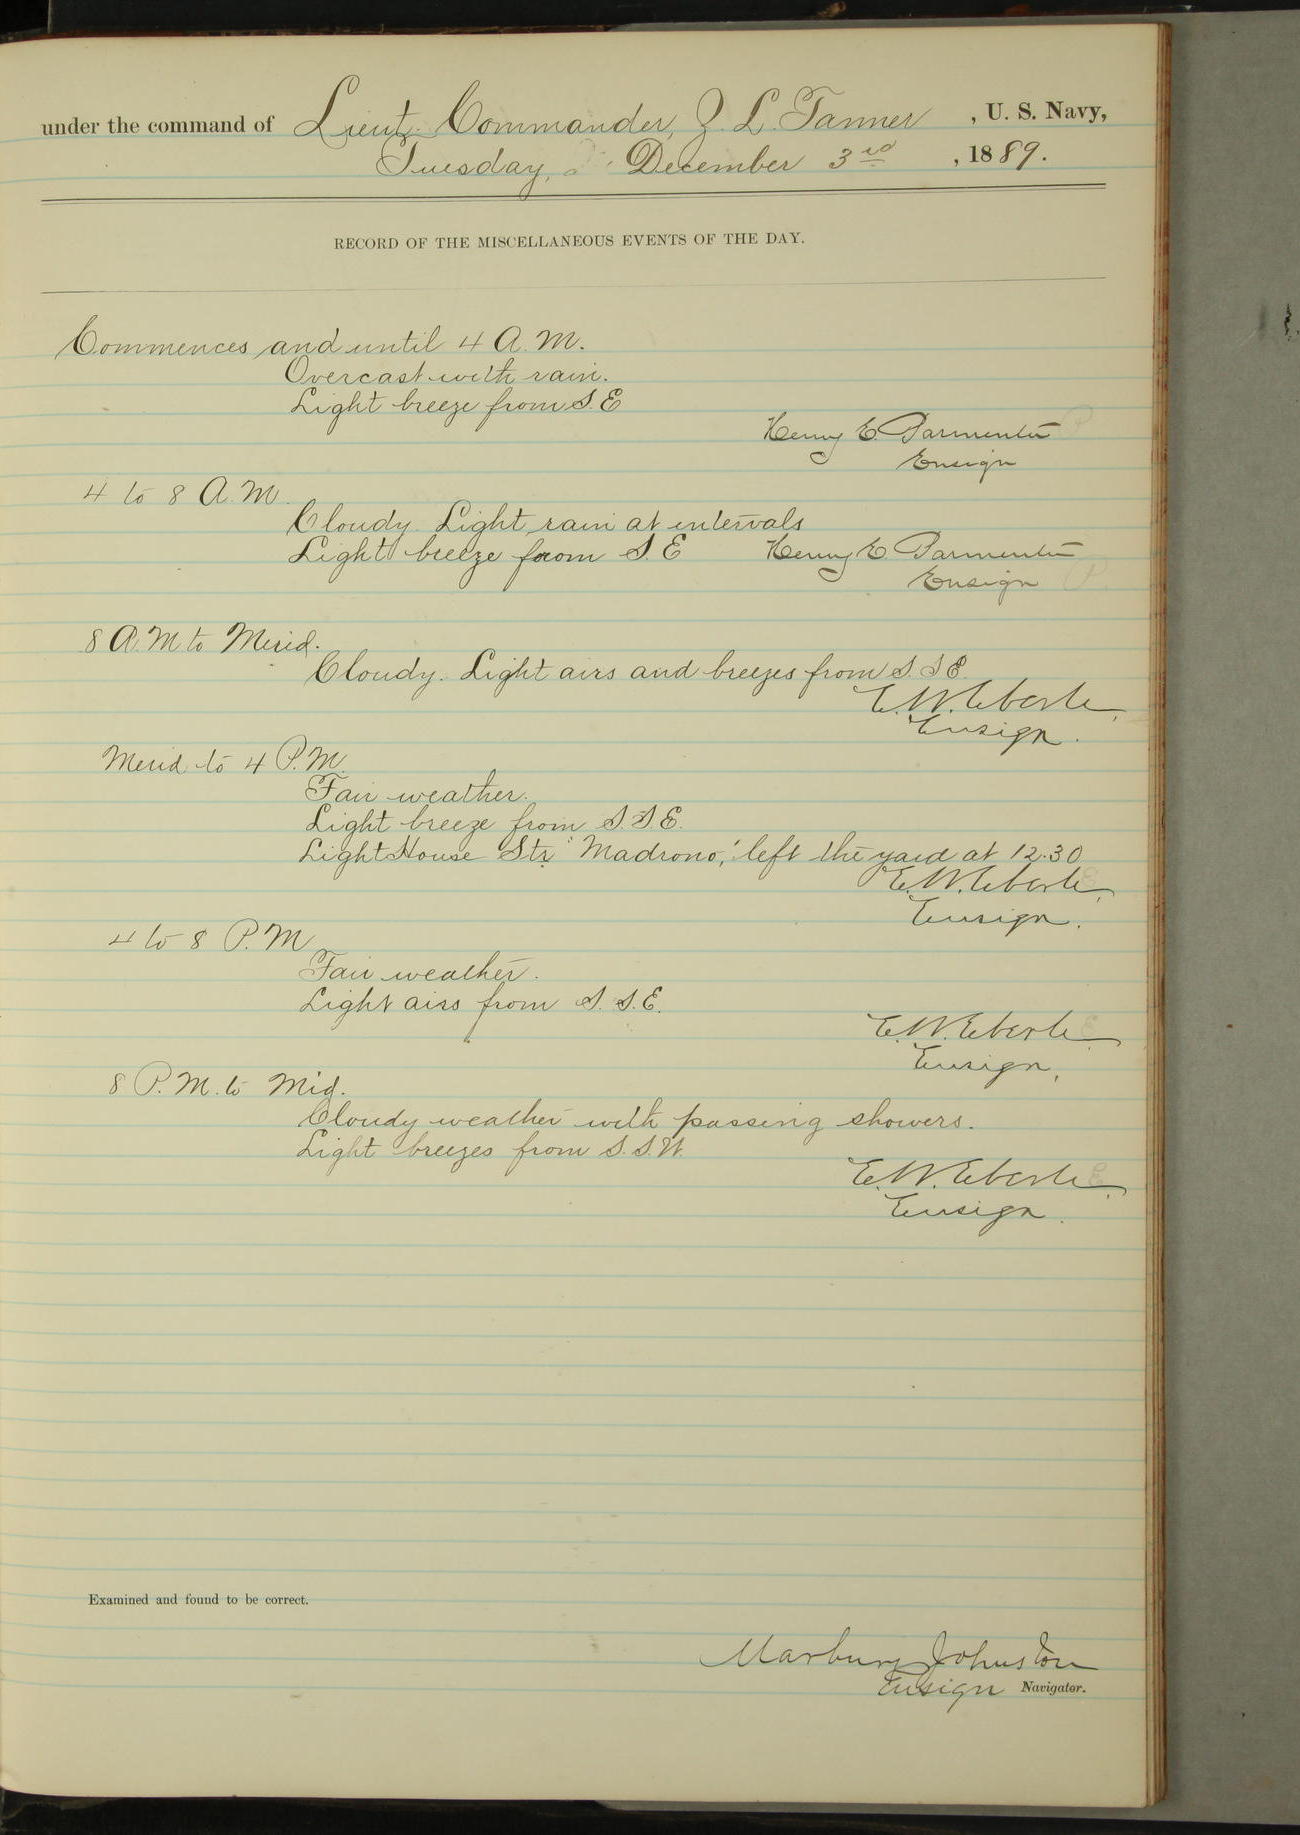 under the command of Lieut. Commander, Z. L. Tanner , U. S. Navy,
Tuesday, December 3rd , 1889.
RECORD OF THE MISCELLANEOUS EVENTS OF THE DAY.
Commences and until 4 A.M.
Overcast with rain.
Light breeze from S.E
Henry E. Parmenter
Ensign
4 to 8 A.M.
Cloudy. Light rain at intervals
Light breeze from S.E Henry E. Parmenter
Ensign
8 A.M to Merid.
Cloudy. Light airs and breezes from S.S E.
E. W. Eberle,
Ensign.
Merid to 4 P.M.
Fair weather.
Light breeze from S.S.E.
Light House Str "Madrono," left the yard at 12.30
E. W. Eberle,
Ensign.
4 to 8 P.M
Fair weather.
Light airs from S. S.E.
E. W. Eberle,
Ensign,
8 P.M. to Mid.
Cloudy weather with passing showers.
Light breezes from S.S.W.
E. W. Eberle,
Ensign.
Examined and found to be correct.
Marbury Johnston
Ensign Navigator.